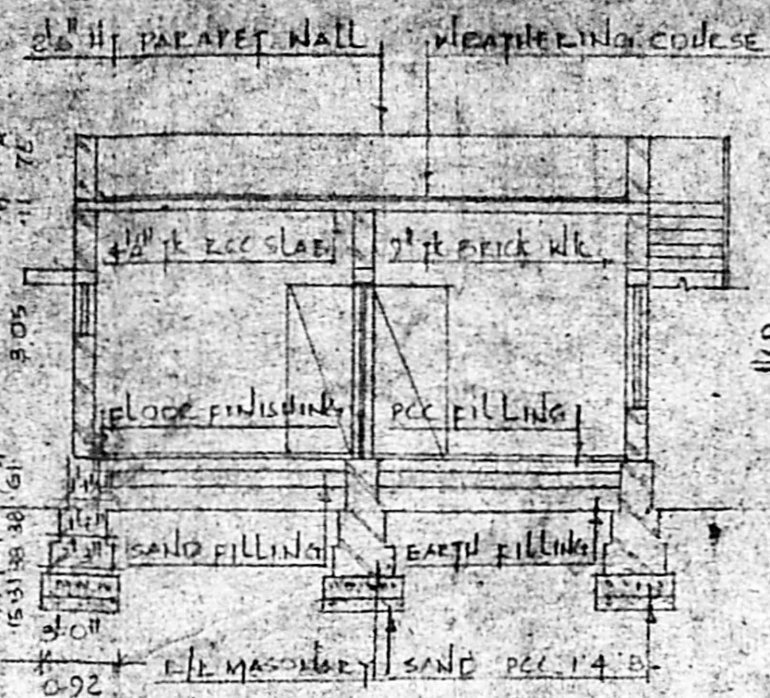 HT PARAPET WALL
WEATHERING COURSE
3.05
TK RCC SLAB
9" TK BRICK WK.
FLOOR FINISHING
PCC FILLING
61
38
38
SAND FILLING
EARTH FILLING
3'-0"
0.92
MASONARY
SAND PCC 1:4:8